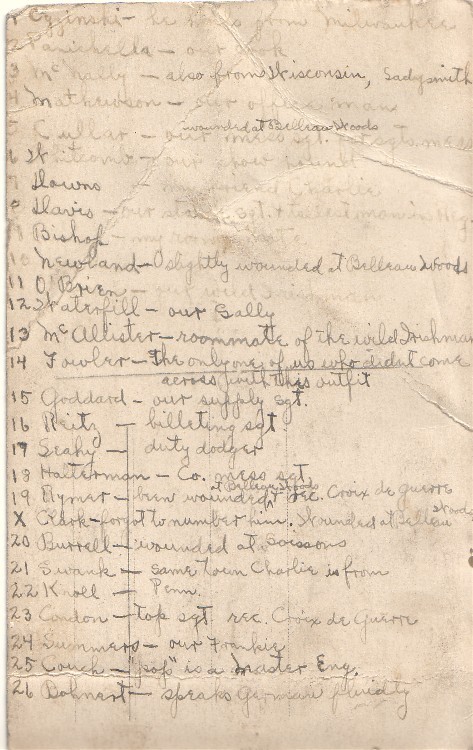 1 Czginski - he hails from Milwaukee
2 Panichella - our cook
3 McNally - also from Wisconsin, Ladysmith
4 Mathewson - our office man
wounded at Belleau Woods
5 Cullar - our mess sgt. sgts. mess
6 Whitcomb - our
7 Downs - my friend Charlie
8 Davis - our sgt. + tallest man in Hdq.
9 Bishop - my roommate
10 Newland - slightly wounded at Belleau Woods
11 O'Brien - our wild Irishman
12 Waterfill - our Sally
13 McAllister - roommate of the wild Irishman
14 Fowler - The only one of us who didn't come
across with this outfit
15 Goddard - our supply sgt.
16 Reitz - billeting sgt.
17 Leahy - duty dodger
18 Halterman - Co. mess sgt.
at Belleau Woods
19 Rymer - been wounded + rec. Croix de Guerre
X Clark - forgot to number him. Wounded at Belleau Woods
20 Burrell - wounded at Soissons
21 Swank - same town Charlie is from
22 Knoll - Penn.
23 Condon - top sgt rec. Croix de Guerre
24 Summers - our Frankie
25 Couch - "pop" is a Master Eng.
26 Bohnert - speaks German fluidly